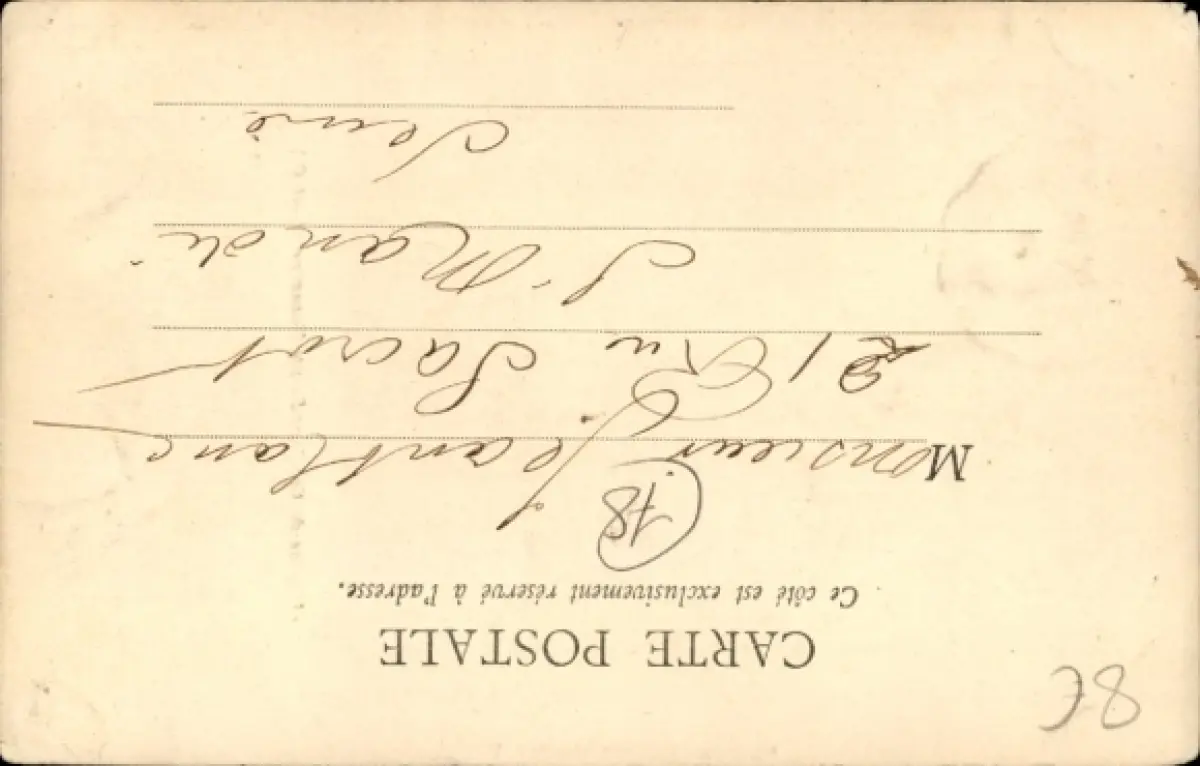 8€
CARTE POSTALE
Ce côté est exclusivement réservé à l'adresse.
18
Monsieur Jeanblanc
21 Rue Sacrot
St Mandé
Seine